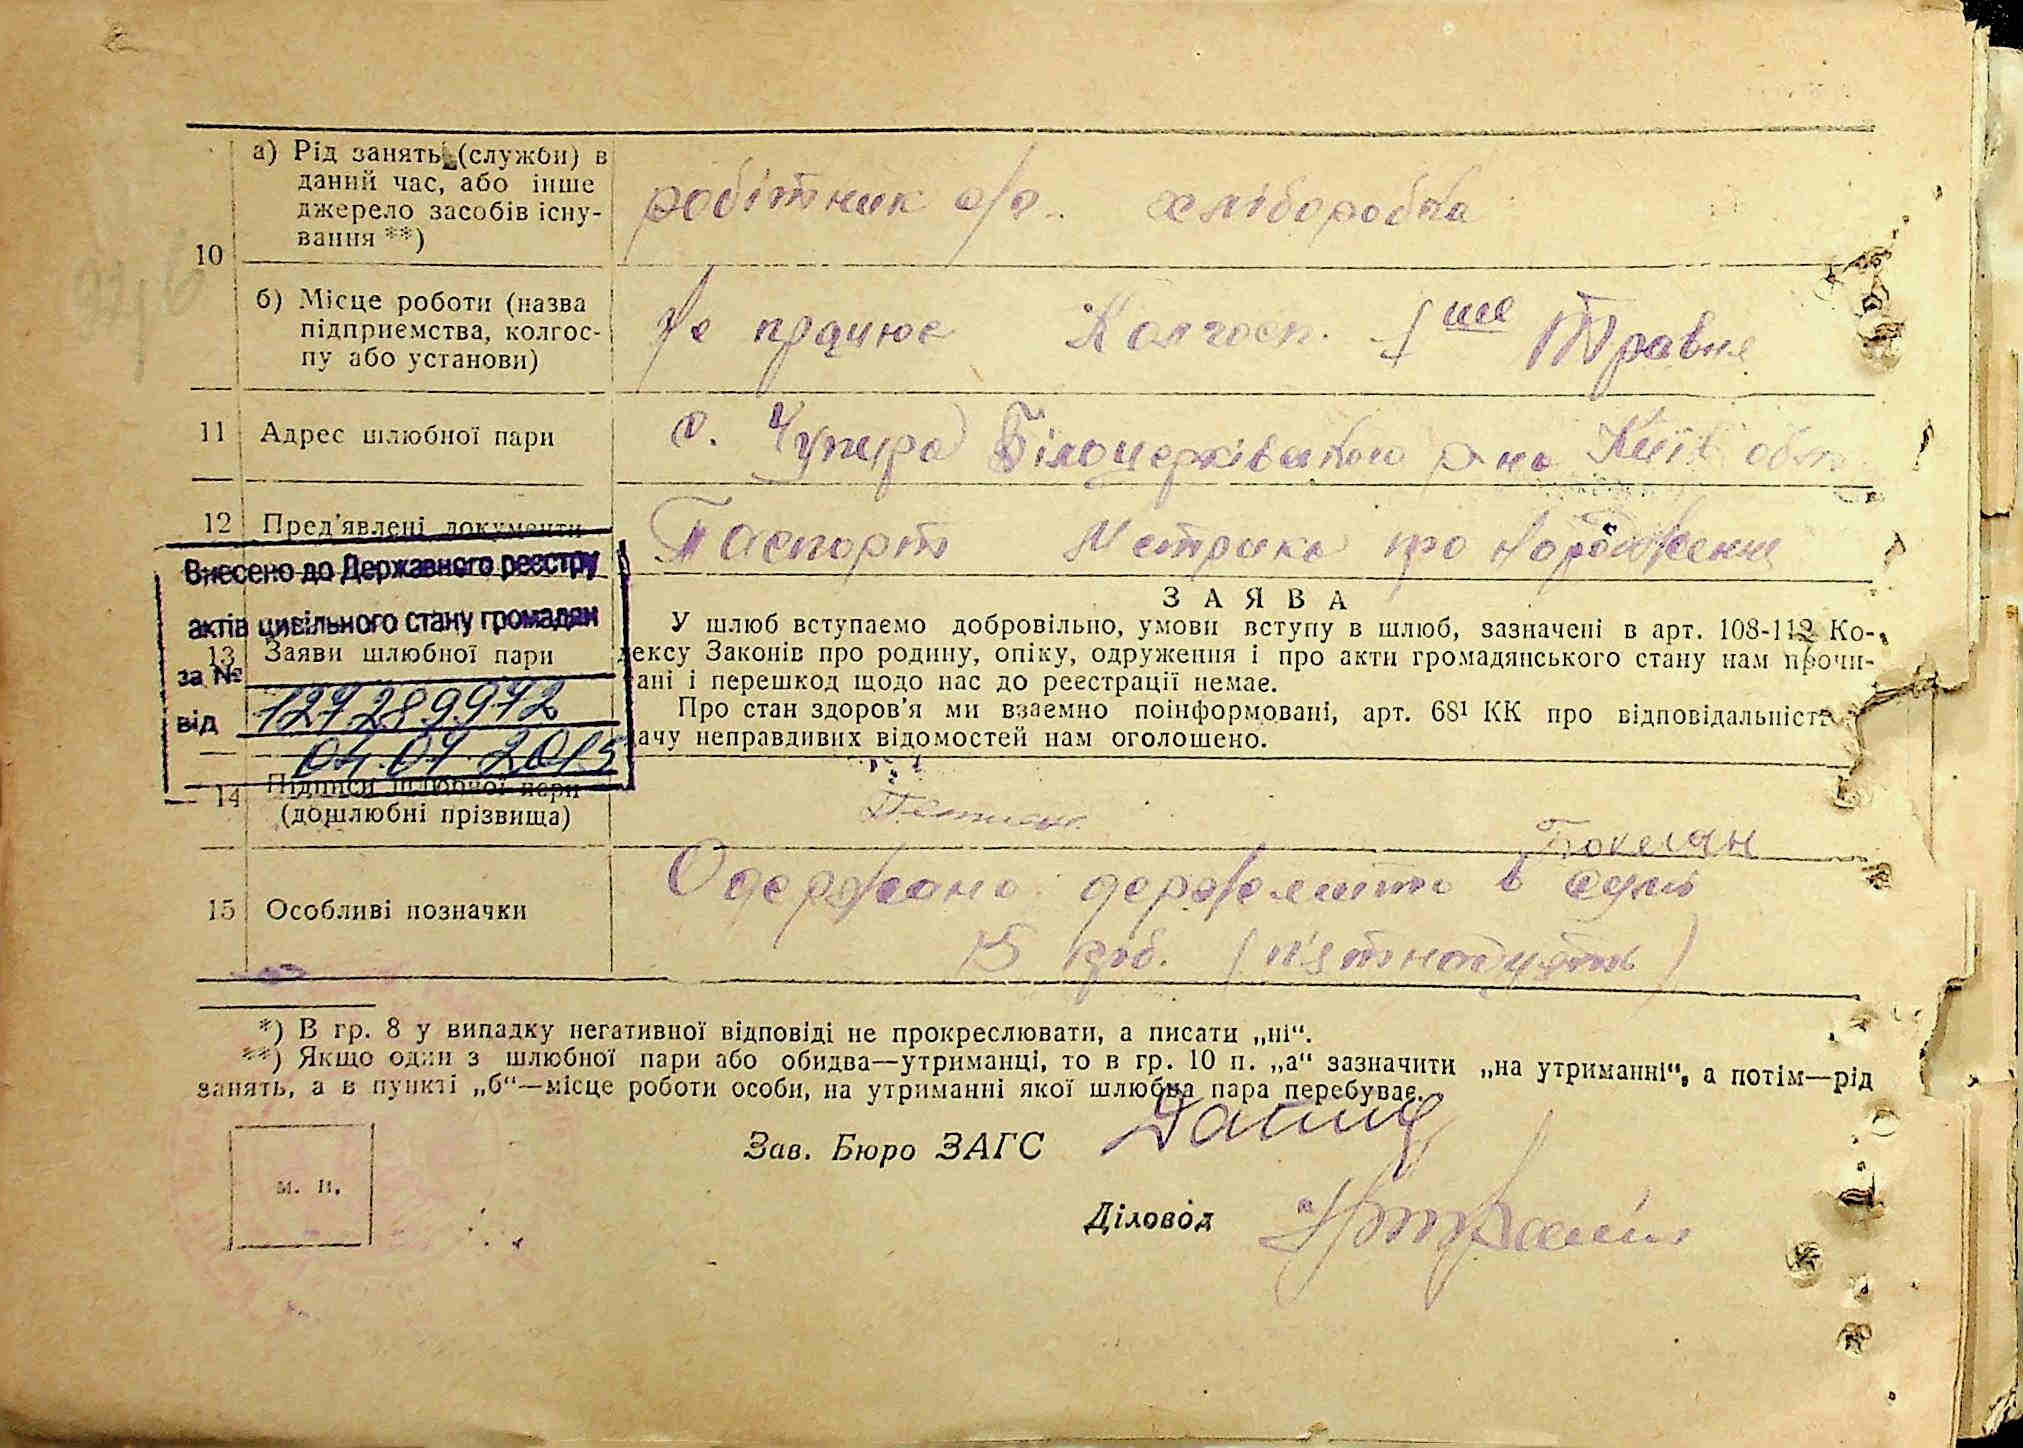 10
а) Рід занять (служби) в
даний час, або інше
джерело засобів існу-
вання **)
робітник с/г. хліборобка
б) Місце роботи (назва
підприємства, колгос-
пу або установи)
Не працює Колгосп. 1ше Травня
11 Адрес шлюбної пари
с. Чупира Білоцерківського р-на Київ обл
12 Пред'явлені документи
Паспорт Метрика про народження
Внесено до Державного реєстру
актів цивільного стану громадян
за №
127289972
від
04.04.2015
13 Заяви шлюбної пари
ЗАЯВА
У шлюб вступаємо добровільно, умови вступу в шлюб, зазначені в арт. 108-112 Ко-
дексу Законів про родину, опіку, одруження і про акти громадянського стану нам прочи-
тані і перешкод щодо нас до реєстрації немає.
Про стан здоров'я ми взаємно поінформовані, арт. 68¹ КК про відповідальність
дачу неправдивих відомостей нам оголошено.
14 Підписи шлюбної пари
(дошлюбні прізвища)
15 Особливі позначки
Одержано держмито в сумі
15 крб. (п'ятнадцять)
*) В гр. 8 у випадку негативної відповіді не прокреслювати, а писати „ні“.
**) Якщо один з шлюбної пари або обидва—утриманці, то в гр. 10 п. „а“ зазначити „на утриманні“, а потім—рід
занять, а в пункті „б“—місце роботи особи, на утриманні якої шлюбна пара перебуває.
Зав. Бюро ЗАГС
м. п.
Діловод